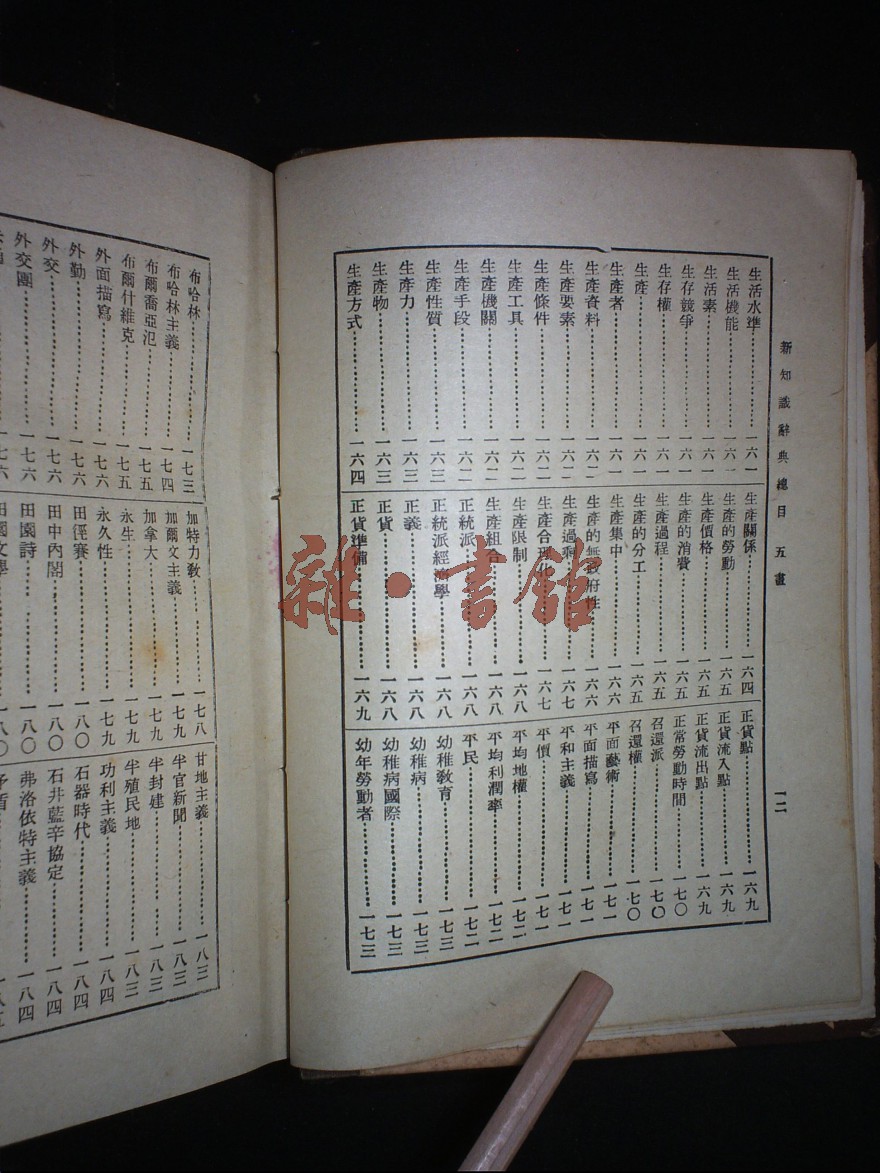 新知識辭典總目 五畫
一二
生活水準……………一六一
生活機能……………一六一
生活素……………一六一
生存競爭……………一六一
生存權……………一六一
生產……………一六一
生產者……………一六一
生產資料……………一六二
生產要素……………一六二
生產條件……………一六二
生產工具……………一六二
生產機關……………一六二
生產手段……………一六二
生產性質……………一六三
生產力……………一六三
生產物……………一六三
生產方式……………一六四
生產關係……………一六四
生產的勞動……………一六五
生產價格……………一六五
生產的消費……………一六五
生產過程……………一六五
生產的分工……………一六五
生產集中……………一六六
生產的無政府性……………一六六
生產過剩……………一六七
生產合理化……………一六七
生產限制……………一六八
生產組合……………一六八
正統派……………一六八
正統派經濟學……………一六八
正義……………一六八
正貨……………一六八
正貨準備……………一六九
正貨點……………一六九
正貨流入點……………一六九
正貨流出點……………一六九
正常勞動時間……………一七〇
召還派……………一七〇
召還權……………一七〇
平面藝術……………一七一
平面描寫……………一七一
平和主義……………一七一
平價……………一七一
平均地權……………一七二
平均利潤率……………一七二
平民……………一七二
幼稚教育……………一七三
幼稚病……………一七三
幼稚病國際……………一七三
幼年勞動者……………一七三
布哈林……………一七三
布哈林主義……………一七四
布爾喬亞氾……………一七五
布爾什維克……………一七五
外面描寫……………一七六
外勤……………一七六
外交……………一七六
外交團……………一七六
加特力教……………一七八
加爾文主義……………一七九
加拿大……………一七九
永生……………一七九
永久性……………一七九
田徑賽……………一八〇
田中內閣……………一八〇
田園詩……………一八〇
田園文學……………一八〇
甘地主義……………一八三
半官新聞……………一八三
半封建……………一八三
半殖民地……………一八三
功利主義……………一八四
石器時代……………一八四
石井藍辛協定……………一八四
弗洛依特主義……………一八四
矛盾
雜·書館